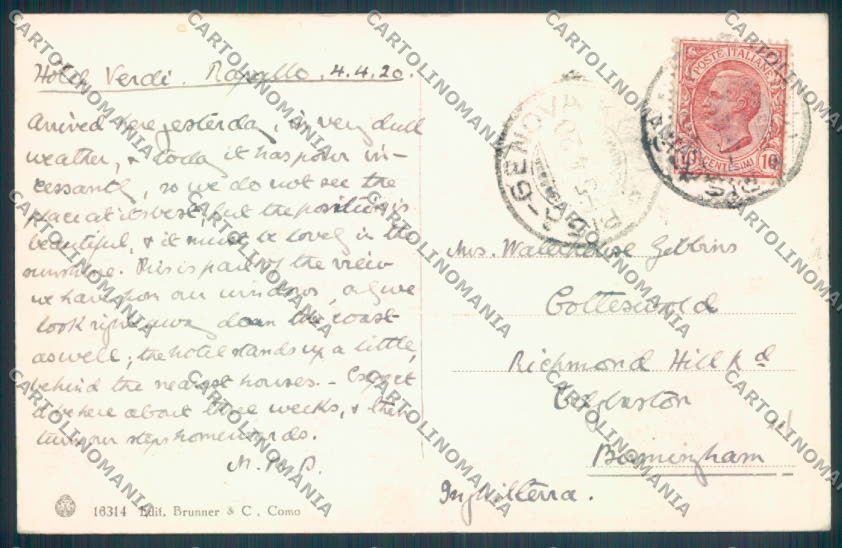 Hotel Verdi. Rapallo. 4.4.20.
Arrived here yesterday, in very dull
weather, & today it has pour in-
cessantly, so we do not see the
place at its best, but the position is
beautiful, & it must be lovely in the
sunshine. This is part of the view
we have from our windows, only we
look right away down the coast
as well; the hotel stands up a little,
behind the nearest houses. - Expect
to be here about three weeks, & then
turn our steps homewards.
POSTE ITALIANE
10 CENTESIMI 10
GENOVA
5 4 20
Mrs. Waterhouse Gibbins
Cotteswold
Richmond Hill Rd
Edgbaston
Birmingham
Inghilterra.
16314 Edit. Brunner & C., Como
CARTOLINOMANIA